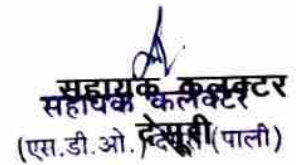 सहायक कलक्टर
सहायक कलेक्टर
(एस.डी.ओ.) देसूरी (पाली)